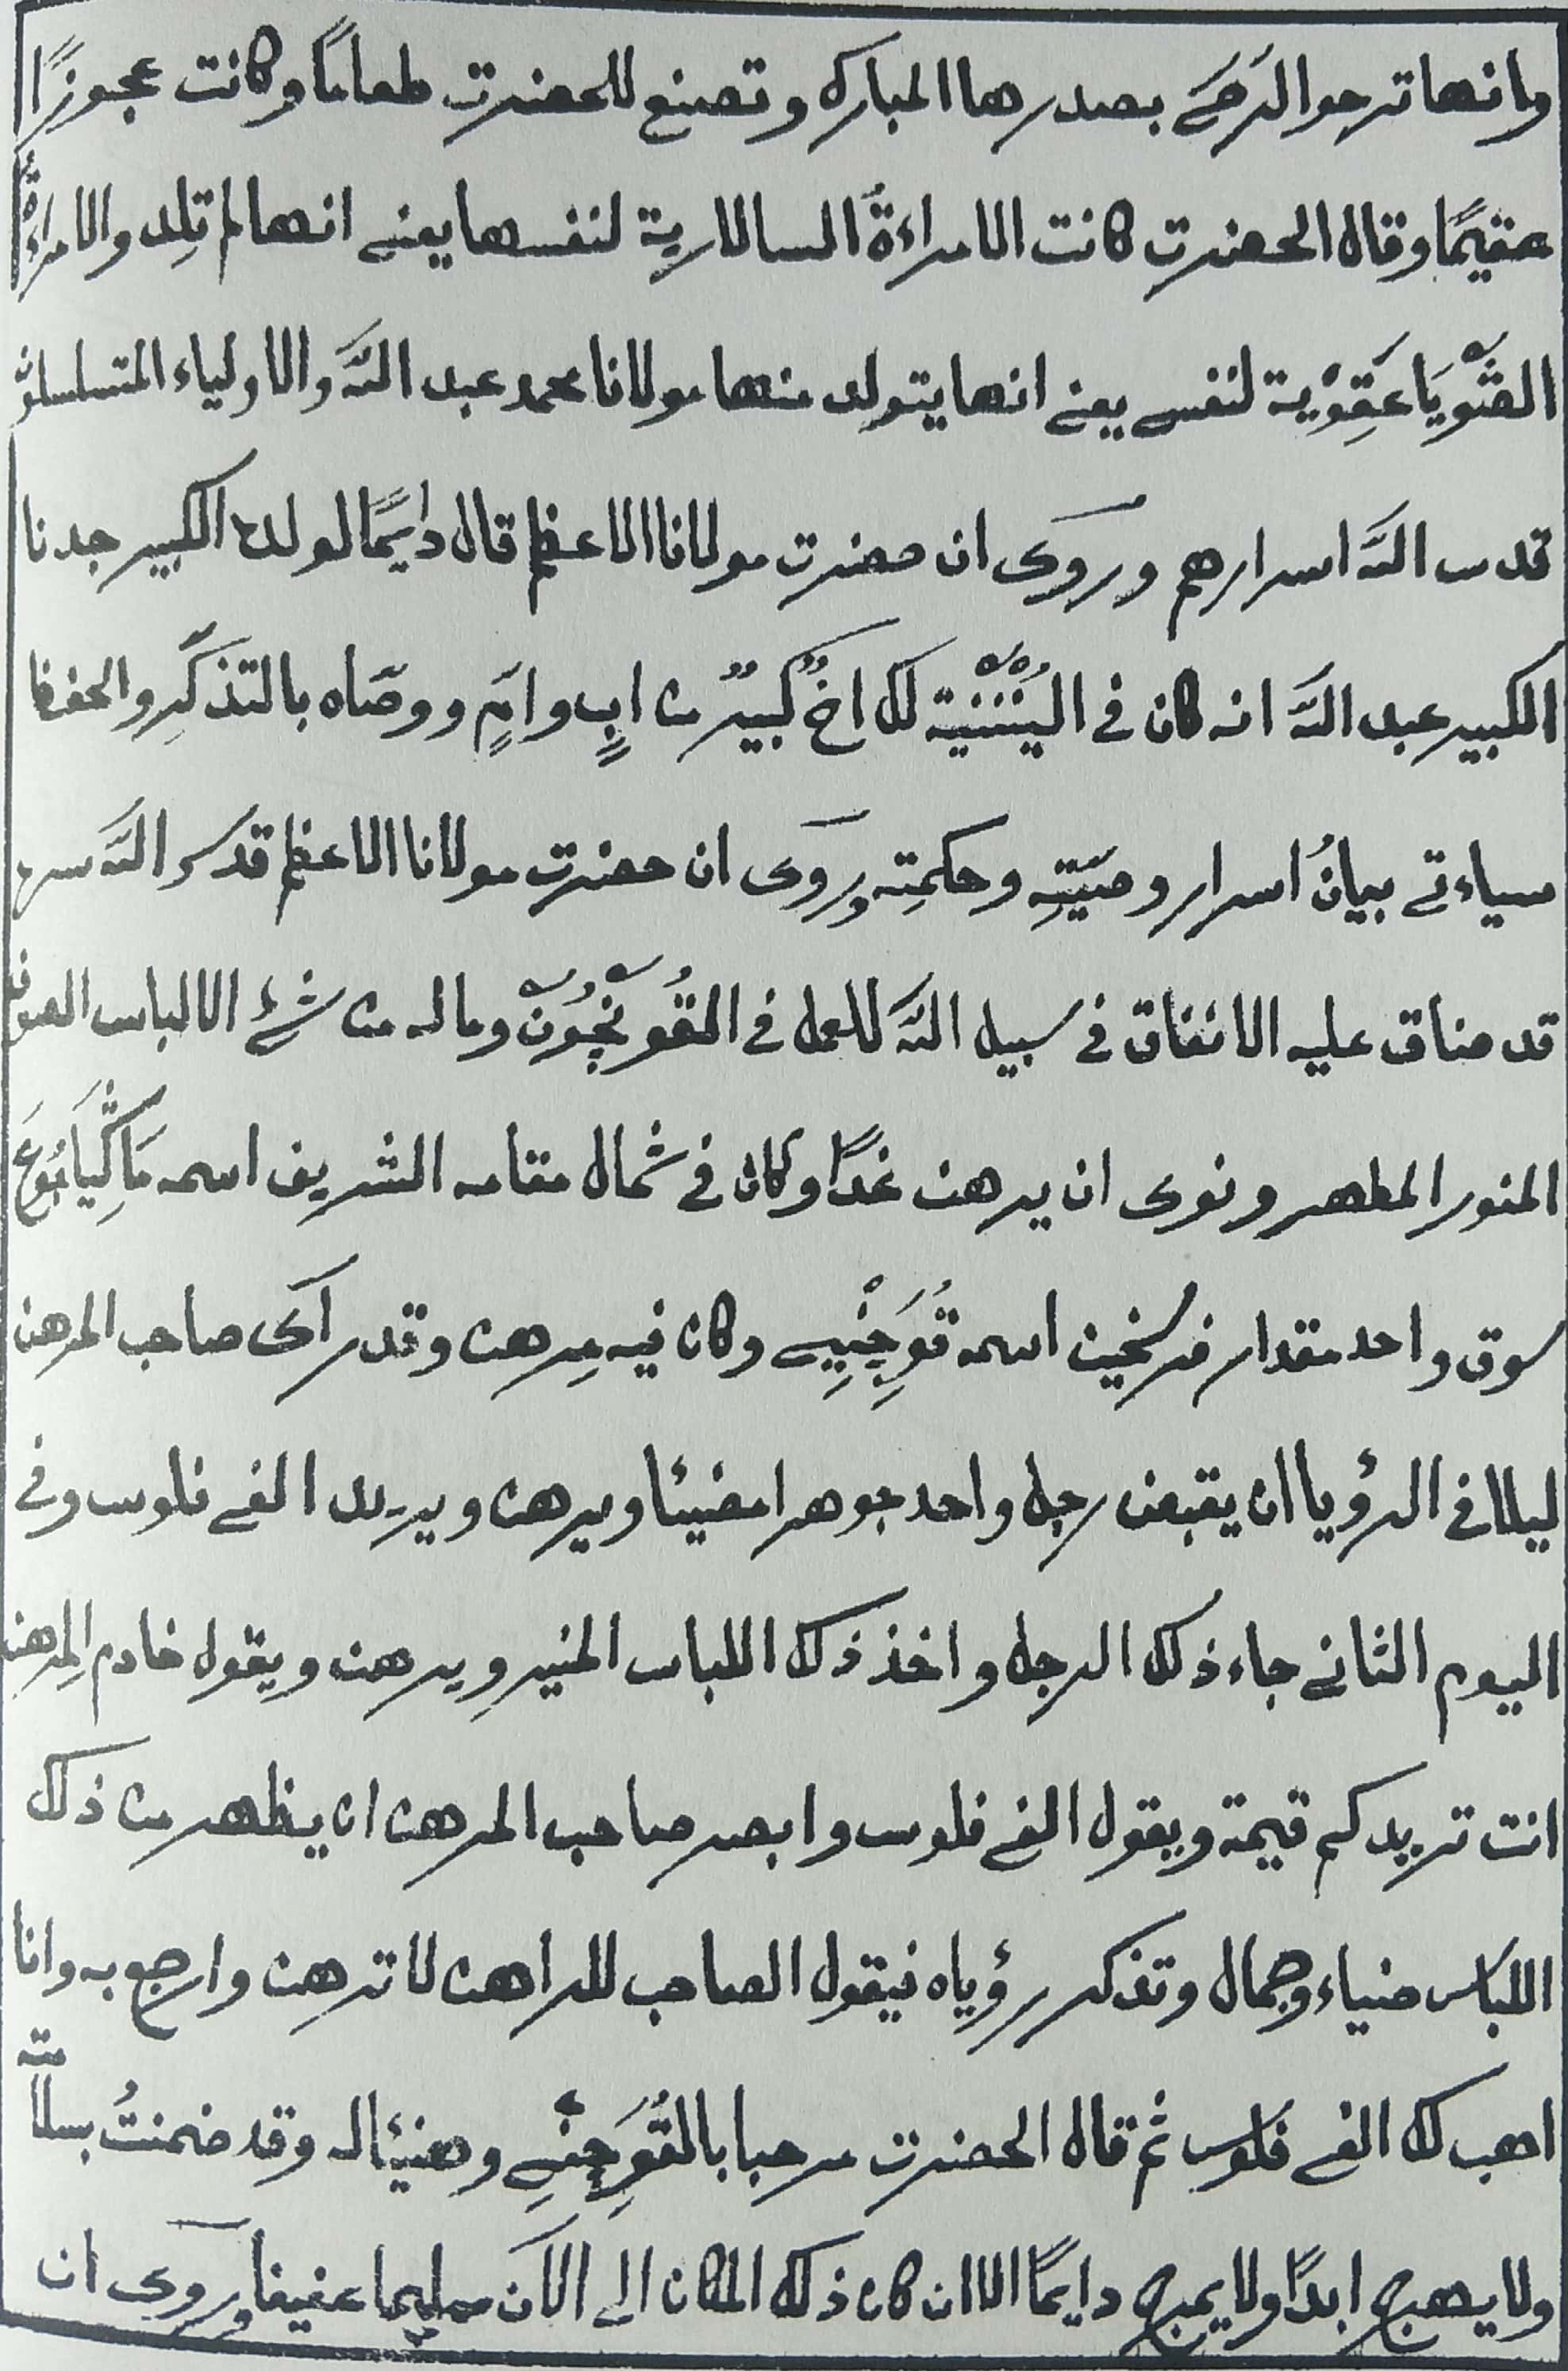 وانها ترحوا الرحى بصدرها المبارك وتصنع للحضرت طعامًا وكانت عجوزًا
عقيمًا وقال الحضرت كانت الامراءة السالارية لنفسها يعني انها لم تلد والامراءةُ
لنفسي يعني انها يتولد منها مولانا محمد عبد الله والاولياء المتسلسلة
قدس الله اسرارهم وروى ان حضرت مولانا الاعظم قال دايمًا لولده الكبير جدنا
الكبير عبد الله انه كان في لك اخٌ كبيرٌ من ابٍ وامٍ ووصّاه بالتذكِّر والحفظ
سياءتي بيانُ اسرار وصيّتِه وحكمتِه وروى ان حضرت مولانا الاعظم قدس الله سره
قد ضاق عليه الانفاق في سبيل الله للعمل في وما له من شئ الا لباس الصوف
المنور المطهر ونوى ان يرهن غدًا وكان في شمال مقامه الشريف اسمه
سوق واحد مقدار فرسخين اسمه قُوَجِنْبِي وكان فيه مِرهن وقد رآى صاحب المرهن
ليلا في الرؤيا ان يقبض رجل واحد جوهرا مضيئا ويرهن ويريد الفي فلوس وفي
اليوم الثاني جاء ذلك الرجل واخذ ذلك اللباس المنير ويرهن ويقول خادم المِرهن
انت تريد كم قيمة ويقول الفي فلوس وابصر صاحب المرهن ان يظهر من ذلك
اللباس ضياء وجمال وتذكر رؤياه فيقول الصاحب للراهن لا ترهن وارجع به وانا
اهب لك الفي فلوس ثم قال الحضرت مرحبا بالقُوَجِنْبِي وهنيئا له وقد ضمنتُ بسلامته
ولا يهرج ابدًا ولا يمرج دايمًا الا ان كان ذلك المكان الى الآن سليما عفيفا وروى ان